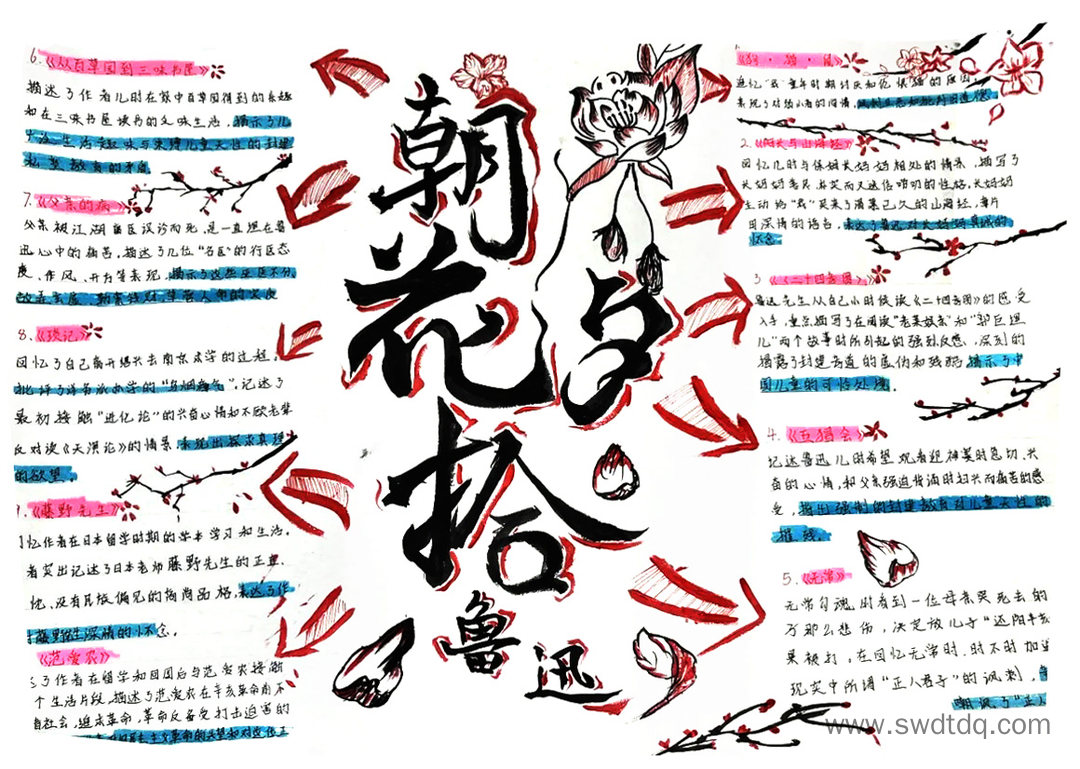 朝花夕拾
鲁迅
1.《狗·猫·鼠》
2.《阿长与山海经》
回忆儿时与保姆长妈妈相处的情景,描写了
长妈妈善良、朴实而又迷信、唠叨的性格,长妈妈
怀念。
3《二十四孝图》
鲁迅先生从自己小时候读《二十四孝图》的感受
入手,重点描写了在阅读"老莱娱亲"和"郭巨埋
儿"两个故事时所引起的强烈反感,深刻的
揭露了封建孝道的虚伪和残酷,揭示了中
国儿童的可怜处境。
4.《五猖会》
记述鲁迅儿时希望观看迎神赛时急切、兴
奋的心情,和父亲强迫背诵时扫兴而痛苦的感
受,指出强制的封建教育对儿童天性的
摧残。
5.《无常》
无常勾魂时看到一位母亲哭死去的
果被打,在回忆无常时,时不时加进
现实中所谓"正人君子"的讽刺,
6.《从百草园到三味书屋》
描述了作者儿时在家中百草园得到的乐趣
和在三味书屋读书的乏味生活,揭示了儿
私塾教育的矛盾
7.《父亲的病》
父亲被江湖庸医误诊而死,是一直埋在鲁
迅心中的痛苦,描述了几位"名医"的行医态
度、作风、开方等表现,揭示了这些巫医不分、
8.《琐记》
回忆了自己离开绍兴去南京求学的过程,
批评了洋务派办学的"乌烟瘴气",记述了
最初接触"进化论"的兴奋心情和不顾老辈
反对读《天演论》的情景,表现出探求真理
的欲望。
《藤野先生》
忆作者在日本留学时期的学本学习和生活,
者突出记述了日本老师藤野先生的正直、
忱、没有民族偏见的高尚品格,表达了作
藤野先生深情的怀念。
《范爱农》
了作者在留学和回国后与范爱农接触
个生活片段,描述了范爱农在辛亥革命前不
自社会,追求革命,革命后备受打击迫害的
www.swdtdq.com